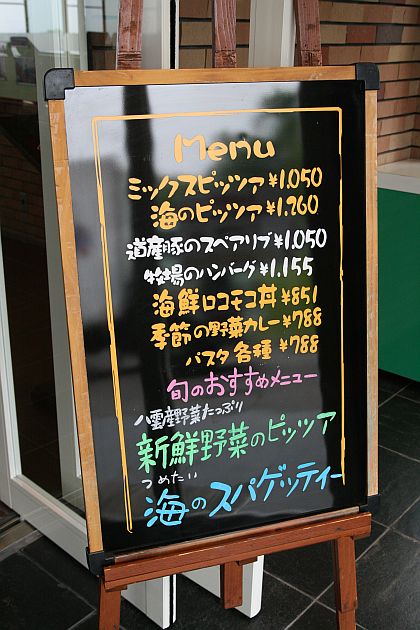 Menu
ミックスピッツァ ¥1.050
海のピッツァ ¥1.260
道産豚のスペアリブ ¥1.050
牧場のハンバーグ ¥1.155
海鮮ロコモコ丼 ¥851
季節の野菜カレー ¥788
パスタ各種 ¥788
旬のおすすめメニュー
八雲産野菜たっぷり
新鮮野菜のピッツァ
つめたい
海のスパゲッティー